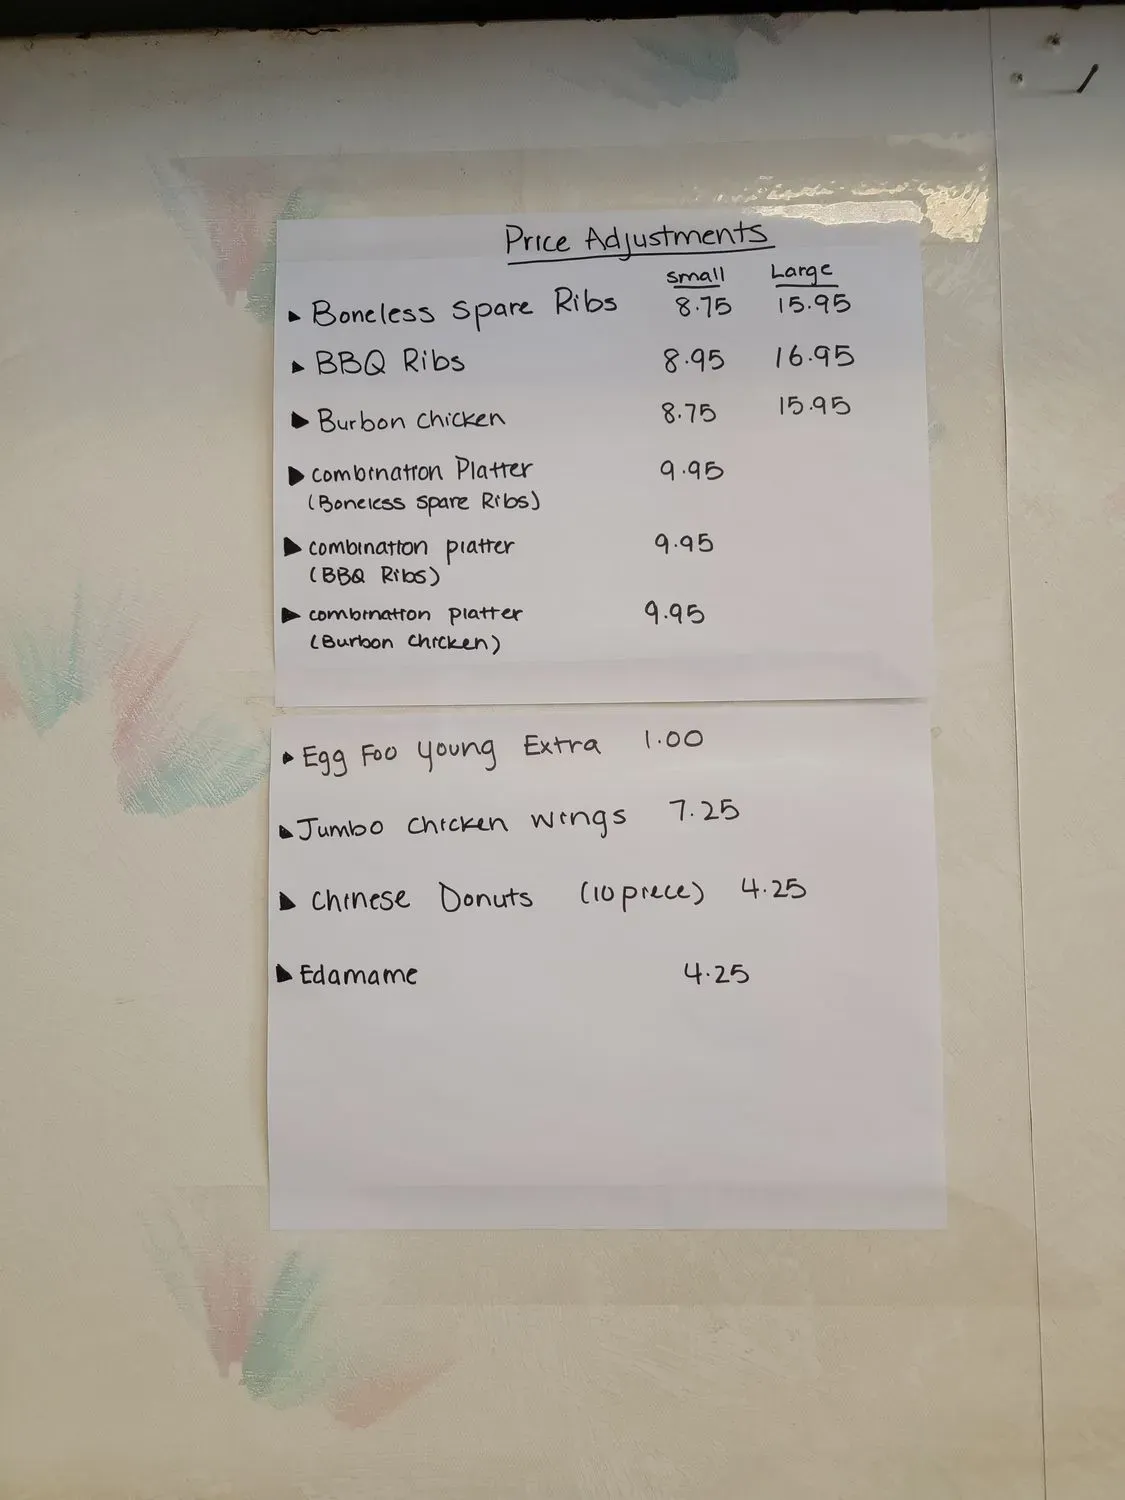 Price Adjustments
small Large
Boneless Spare Ribs 8.75 15.95
BBQ Ribs 8.95 16.95
Burbon Chicken 8.75 15.95
Combination Platter 9.95
(Boneless Spare Ribs)
combination platter 9.95
(BBQ Ribs)
combination platter 9.95
(Burbon Chicken)
Egg Foo young Extra 1.00
Jumbo Chicken Wings 7.25
Chinese Donuts (10 piece) 4.25
Edamame 4.25